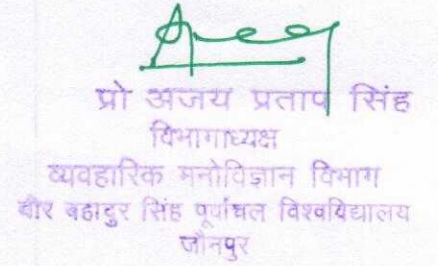 प्रो अजय प्रताप सिंह
विभागाध्यक्ष
व्यवहारिक मनोविज्ञान विभाग
वीर बहादुर सिंह पूर्वांचल विश्वविद्यालय
जौनपुर